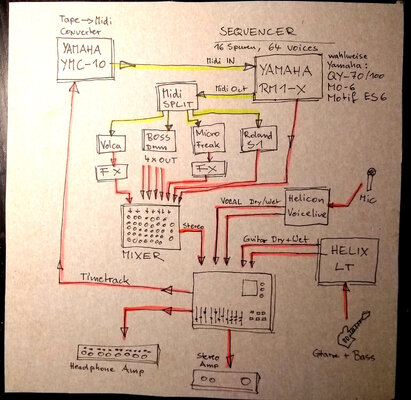 Tape→Midi
Converter
YAMAHA
YMC-10
SEQUENCER
16 Spuren, 64 voices
Midi IN
YAMAHA
RM1-X
wahlweise
Yamaha:
QY-70/100
MO-6
Motif ES6
Midi Out
Midi
SPLIT
Volca
BOSS
Drum
Micro
Freak
Roland
S1
FX
4xOUT
FX
MIXER
Stereo
VOCAL Dry/Wet
Helicon
Voicelive
Mic
Guitar Dry+Wet
HELIX
LT
Timetrack
Headphone Amp
Stereo
Amp
Gitarre + Bass